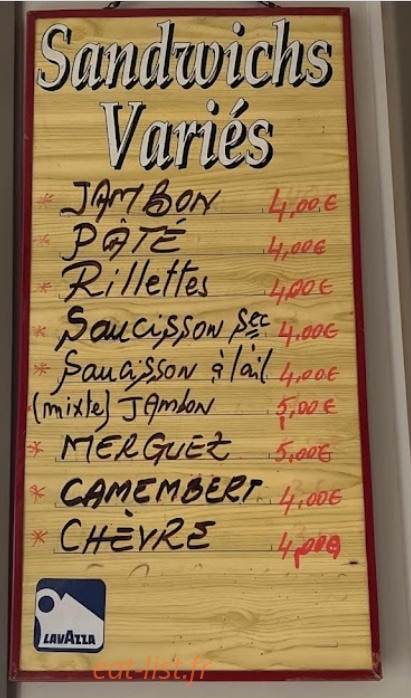 Sandwichs
Variés
* JAMBON 4,00€
* PÂTÉ 4,00€
* Rillettes 4,00€
* Saucisson sec 4,00€
* Saucisson à l'ail 4,00€
(mixte) JAMBON 5,00€
* MERGUEZ 5,00€
* CAMEMBERT 4,00€
* CHÈVRE 4,00€
LAVAZZA
eat-list.fr